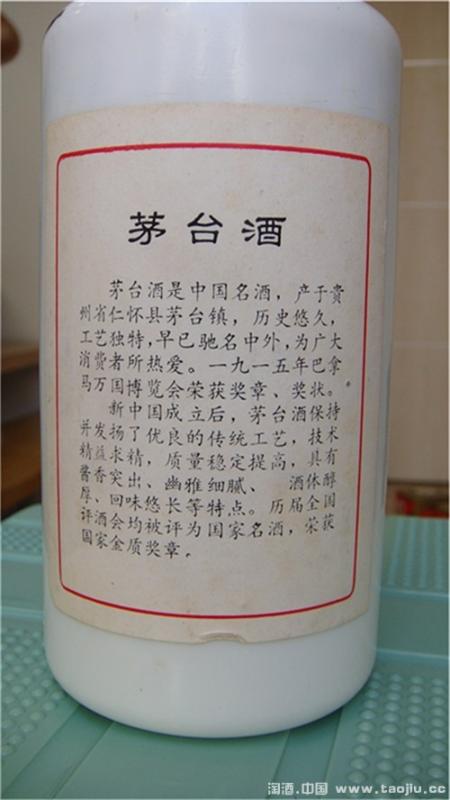 茅台酒
茅台酒是中国名酒，产于贵
州省仁怀县茅台镇，历史悠久，
工艺独特，早已驰名中外，为广大
消费者所热爱。一九一五年巴拿
马万国博览会荣获奖章、奖状。
新中国成立后，茅台酒保持
并发扬了优良的传统工艺，技术
精益求精，质量稳定提高，具有
酱香突出、幽雅细腻、酒体醇
厚、回味悠长等特点。历届全国
评酒会均被评为国家名酒，荣获
国家金质奖章。
淘酒.中国 www.taojiu.cc